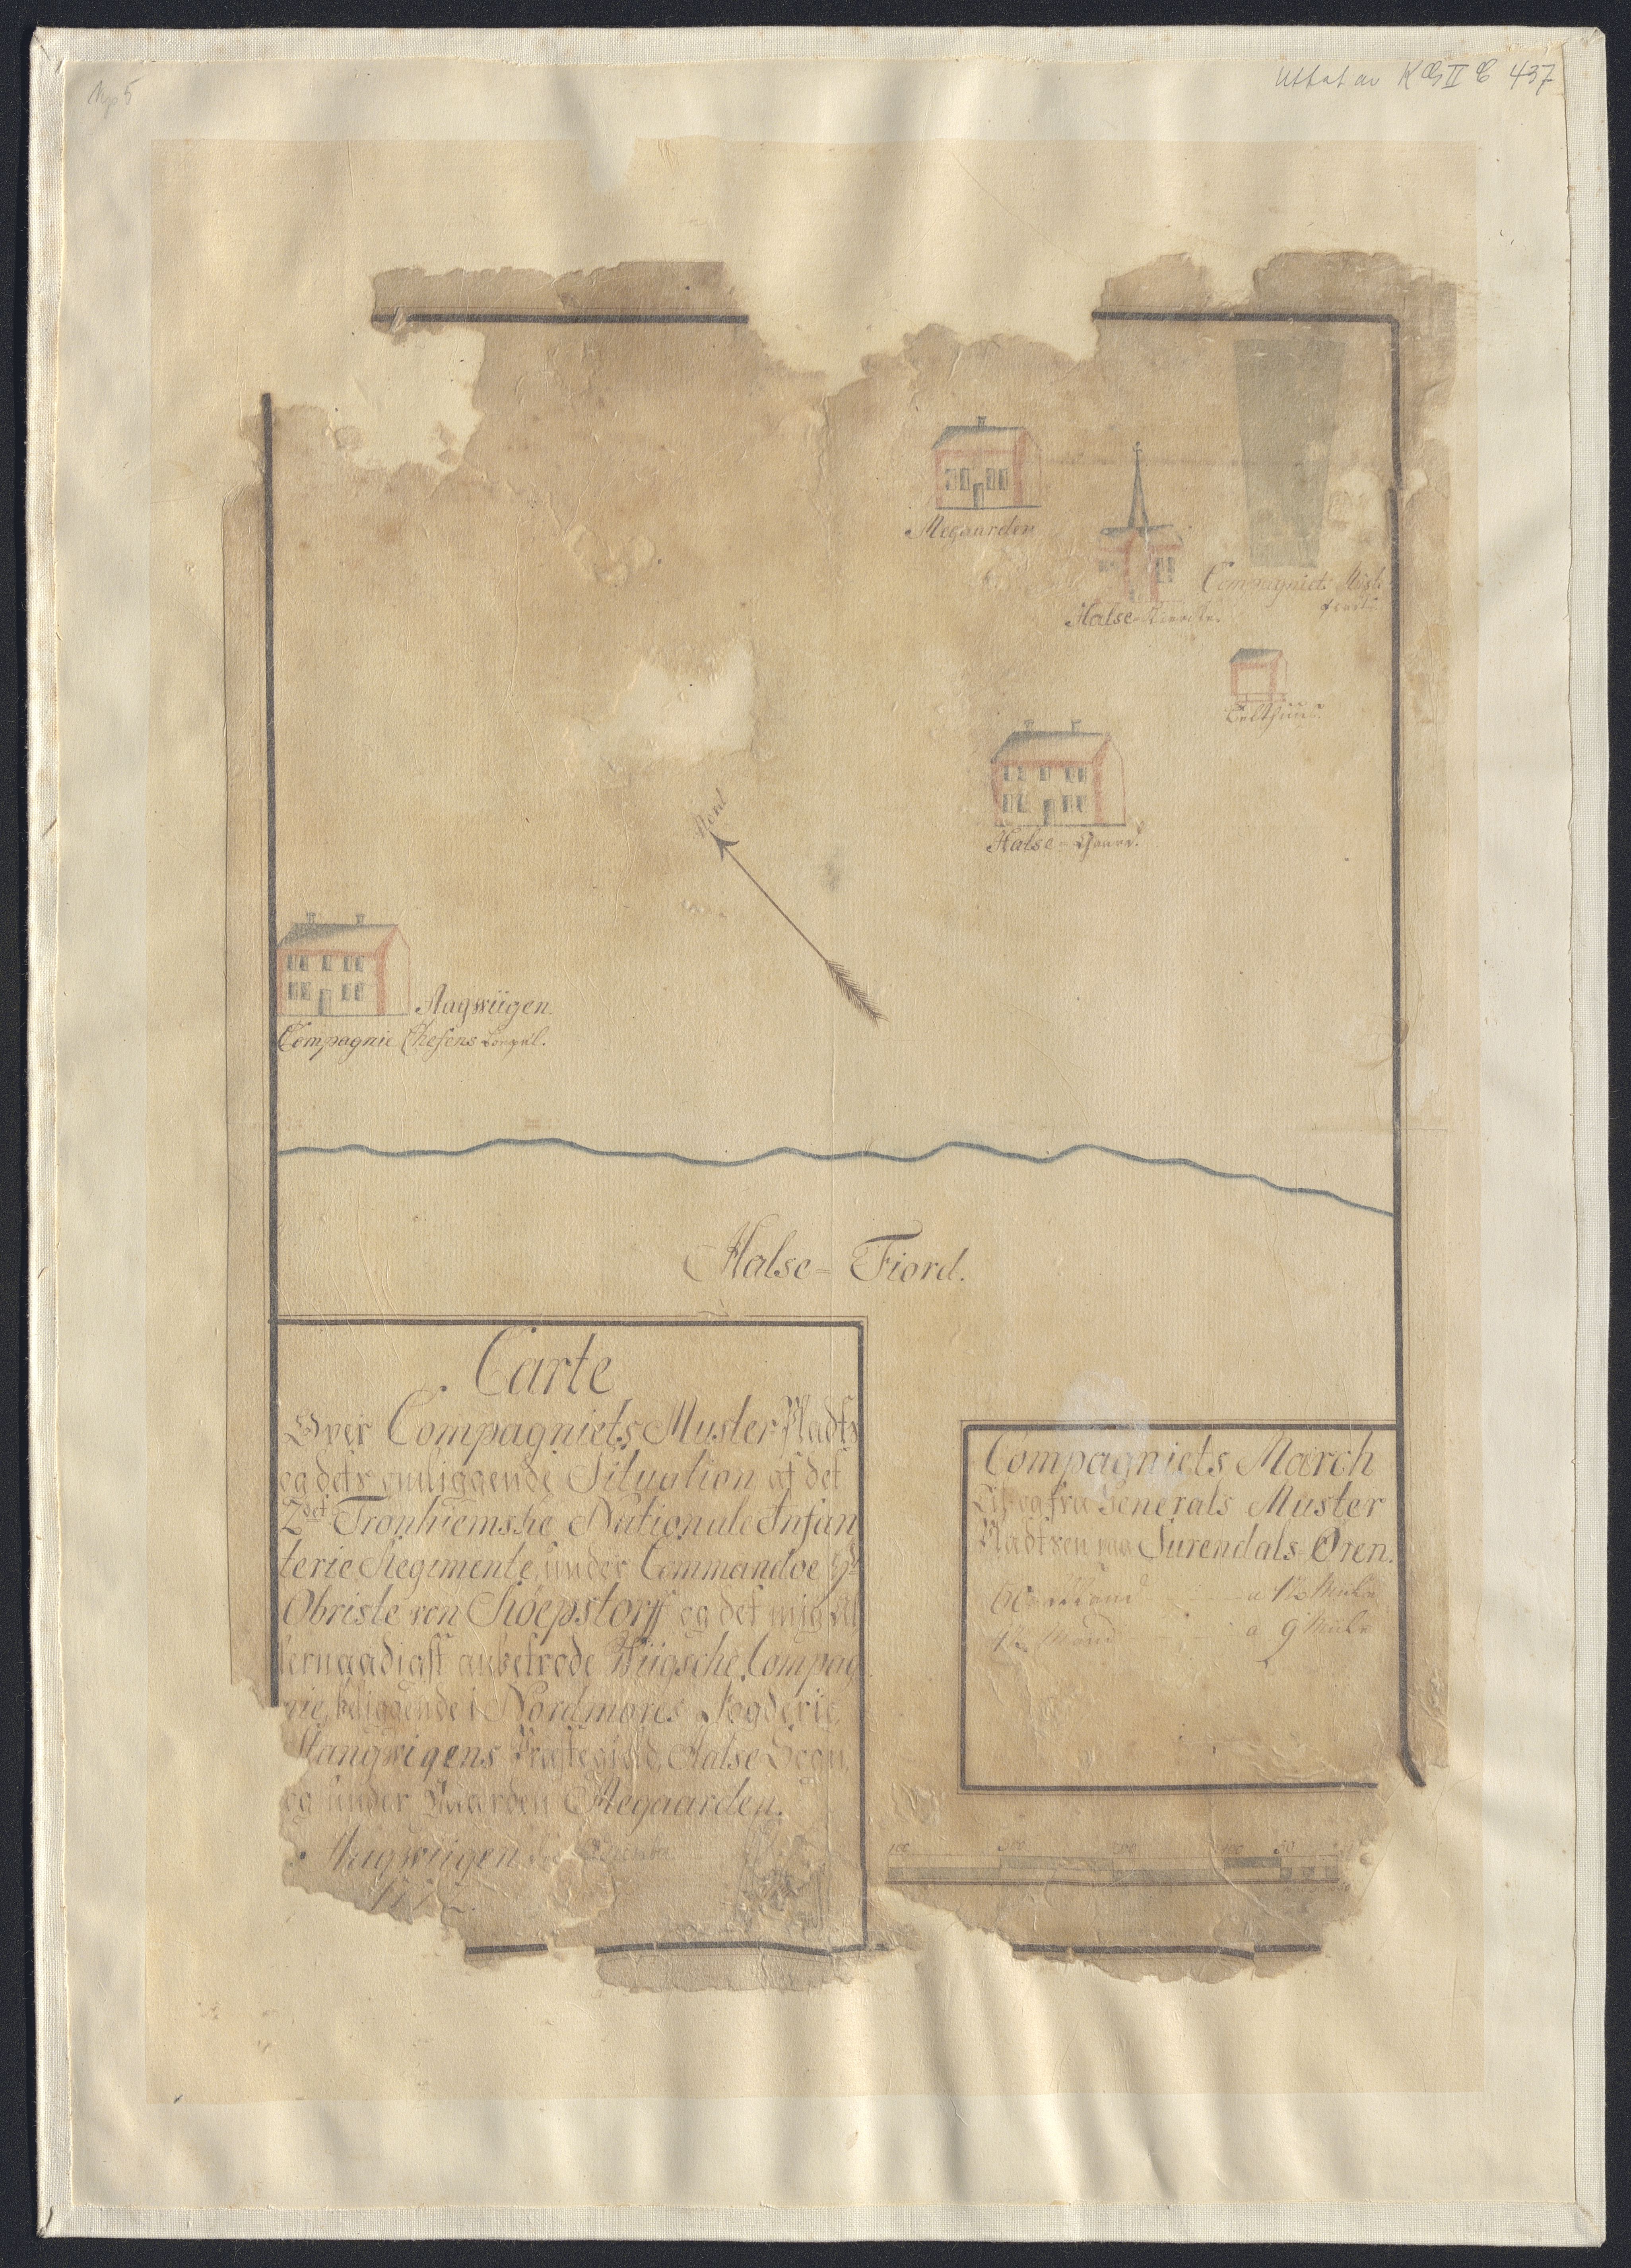 Nº 5
KG II 437
Megaarden
Halse-Kierche.
Compagniets
Telthuus.
Halse-Gaard.
Nord
Aagwiigen.
Compagnie Chefens
Halse-Fiord.
Carte
Over Compagniets Muster Pladts
og dets omliggende Situation af det
2det Tronhiemske Nationale Infan
terie Regimente, under Commandoe Hr
Obriste von Köepstorff og det mig al
lernaadigst anbetrode Wiigsche Compag
nie, beliggende i Nordmøres Fogderie,
Stangwigens Præstegield, Halse Sogn,
og under Gaarden Megaarden.
Aagwiigen
Compagniets March
Til og fra Generals Muster
Pladtsen paa Surendals Øren.
a 1½ Miile
a 9 Miile
100 300 200 100 50